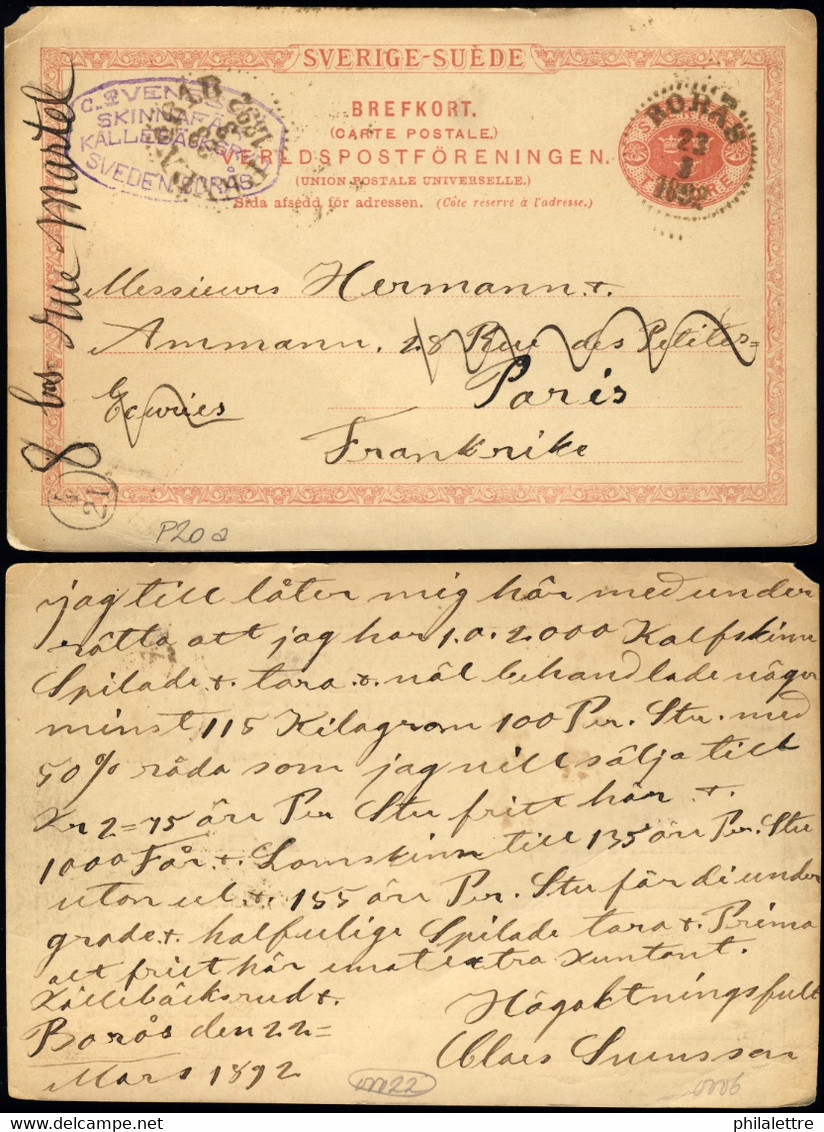 SVERIGE-SUÈDE
BREFKORT.
(CARTE POSTALE.)
VERLDSPOSTFÖRENINGEN.
(UNION POSTALE UNIVERSELLE.)
Sida afsedd för adressen. (Côte réservé à l'adresse.)
SKINNAFÄ
KÄLLEBÄCKSR
SVEDEN BORÅS
BORÅS
23
3
1892
8 bis rue Martel
Messieurs Hermann &.
Ammann, 28 Rue des Petites-
Ecuries Paris
Frankrike
21
P20a
jag till låter mig här med under
rätta att jag har 1.a. 2.000 Kalfskinn
Spilade &. tara &. väl behandlade väger
minst 115 Kilagram 100 Per. Stu. med
50% röda som jag vill sälja till
Kr 2=75 öre Per Stu fritt här &.
1000 Får &. Lamskinn till 135 öre Per. Stu
utan ul &. 155 öre Per. Stu för di under
grade &. halfulige Spilade tara &. Prima
alt fritt här emot extra Kuntant.
Källebäcksrud &.
Borås den 22=
Mars 1892
Högaktningsfullt
Claes Svensson
philalettre